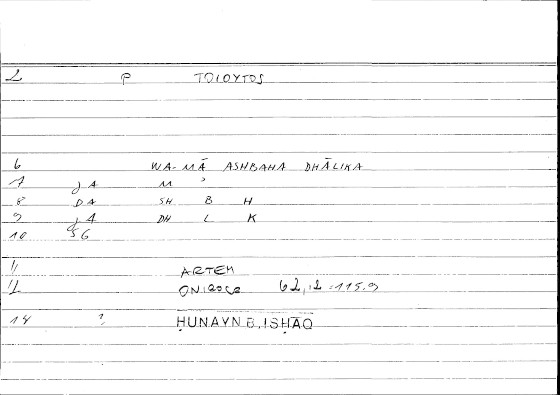 2 P TOIOYTOS
6 WA-MĀ ASHBAHA DHĀLIKA
7 JA M ʾ
8 DA SH B H
9 JA DH L K
10 §6
11 ARTEM
12 ONIROCR 62,12 = 115.9
14 ? ḤUNAYN B. ISḤĀQ